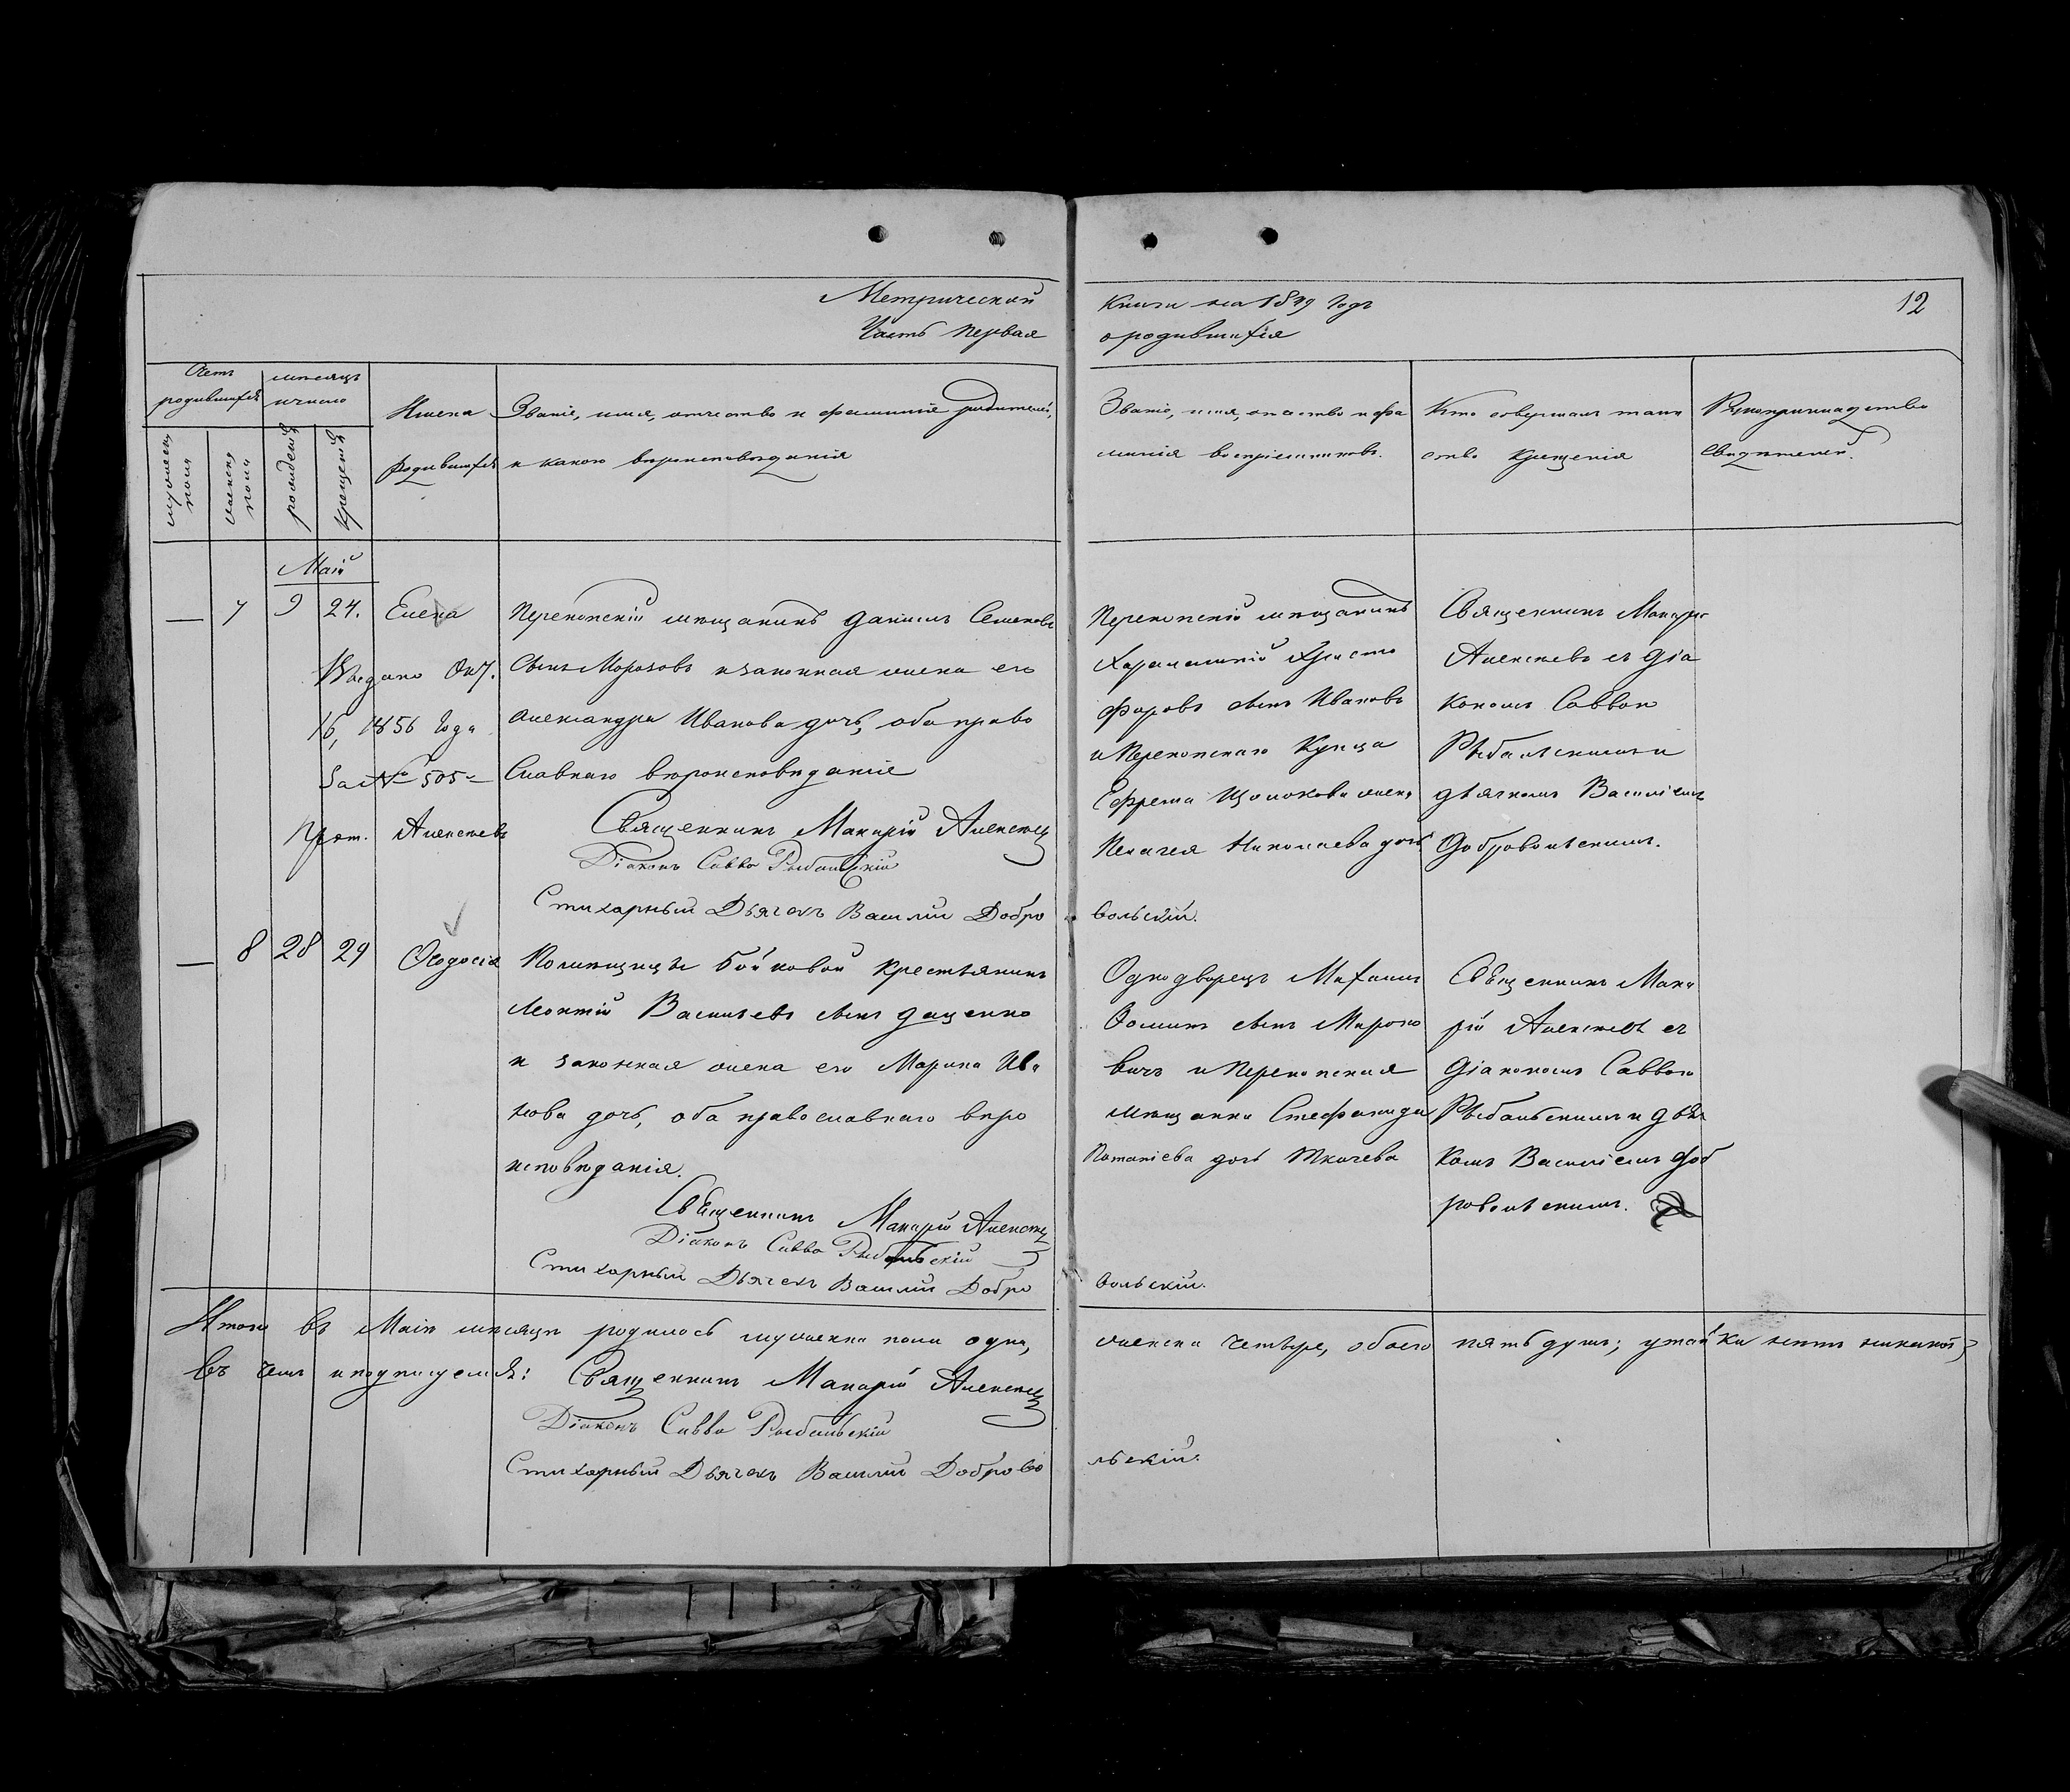 Метрической
Часть первая
Книги на 1849 годъ
о родившихся
12
Счетъ родившихся
мѣсяцъ и число
мужеска пола
женска пола
рожденія
крещенія
Имена
родившихся
Званіе, имя, отчество и фамилія родителей,
и какого вѣроисповѣданія
Званіе, имя, отчество и фа
милія воспріемниковъ.
Кто совершалъ таин
ство крещенія
Рукоприкладство
свидѣтелей.
Маій
— 7 9 24. Елена
Выдано Окт.
16, 1856 года
За № 505
Прот. Алексѣевъ
Перекопскій мѣщанинъ Даніилъ Семеновъ
сынъ Морозовъ и законная жена его
Александра Иванова дочь, оба право
славнаго вѣроисповѣданія
Священникъ Макарій Алексѣевъ
Діаконъ Савва Рыбальскій
Стихарный Дьячекъ Василій Добро
вольскій.
Перекопскій мѣщанинъ
Харалампій Христо
форовъ сынъ Ивановъ
и Перекопскаго Купца
Ефрема Щолокова жена
Пелагея Николаева дочь
Священникъ Макарій
Алексѣевъ съ Діа
кономъ Саввою
Рыбальскимъ и
дьячкомъ Василіемъ
Добровольскимъ.
— 8 28 29 Ѳеодосія
Помѣщицы Бойковой крестьянинъ
Леонтій Васильевъ сынъ Даценко
и законная жена его Марина Ива
нова дочь, оба православнаго вѣро
исповѣданія.
Священникъ Макарій Алексѣевъ
Діаконъ Савва Рыбальскій
Стихарный Дьячекъ Василій Добро
вольскій.
Однодворецъ Михаилъ
Ѳоминъ сынъ Мироно
вичъ и Перекопская
мѣщанка Стефанида
Потапіева дочь Ткачева
Священникъ Мака
рій Алексѣевъ съ
Діакономъ Саввою
Рыбальскимъ и дьяч
комъ Василіемъ Доб
ровольскимъ.
Итого въ Маіи мѣсяцѣ родилось мужеска пола одна, женска четыре, обоего пять душъ; утайки нѣтъ никакой,
въ чемъ и подписуемся: Священникъ Макарій Алексѣевъ
Діаконъ Савва Рыбальскій
Стихарный Дьячекъ Василій Доброво
льскій.